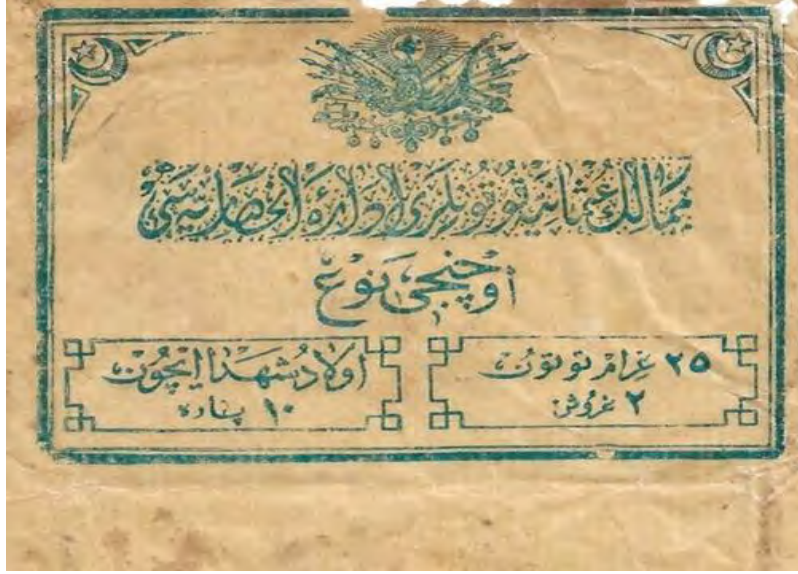 ممالك عثمانیه توتونلری اداره انحصاریه سی
اوچنجی نوع
٢٥ غرام توتون
٢ غروش
اولاد شهدا ایچون
١٠ پاره